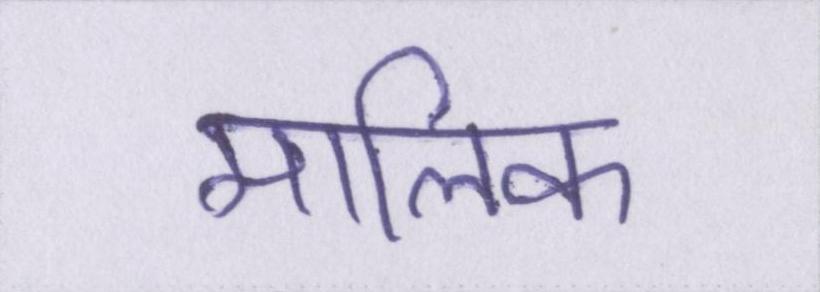 मालिक